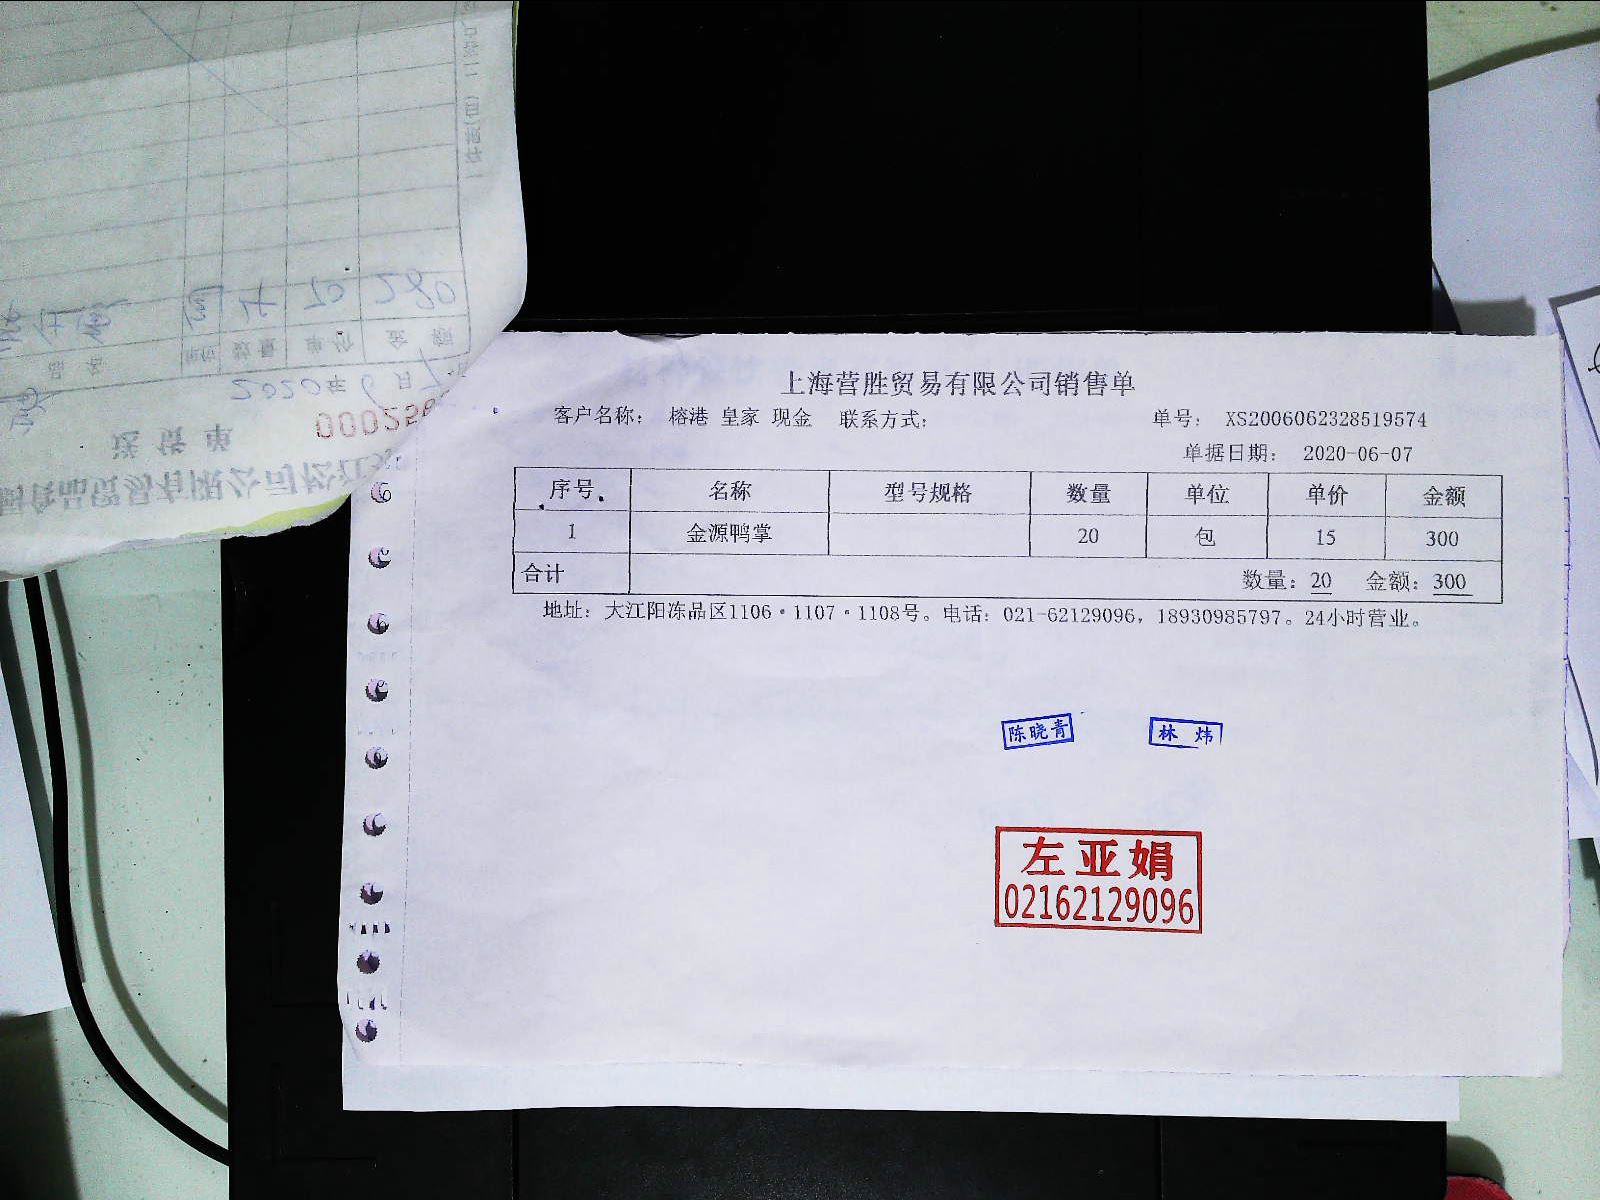 上海营胜贸易有限公司销售单
客户名称： 榕港 皇家 现金 联系方式： 单号： XS2006062328519574
单据日期： 2020-06-07
序号 名称 型号规格 数量 单位 单价 金额
1 金源鸭掌 20 包 15 300
合计 数量：20 金额：300
地址：大江阳冻品区1106·1107·1108号。电话：021-62129096，18930985797。24小时营业。
陈晓青 林炜
左亚娟
02162129096
食品贸易有限公司松江
送货单
2020年6月7
品名 数量 单价 金额
4 70 280